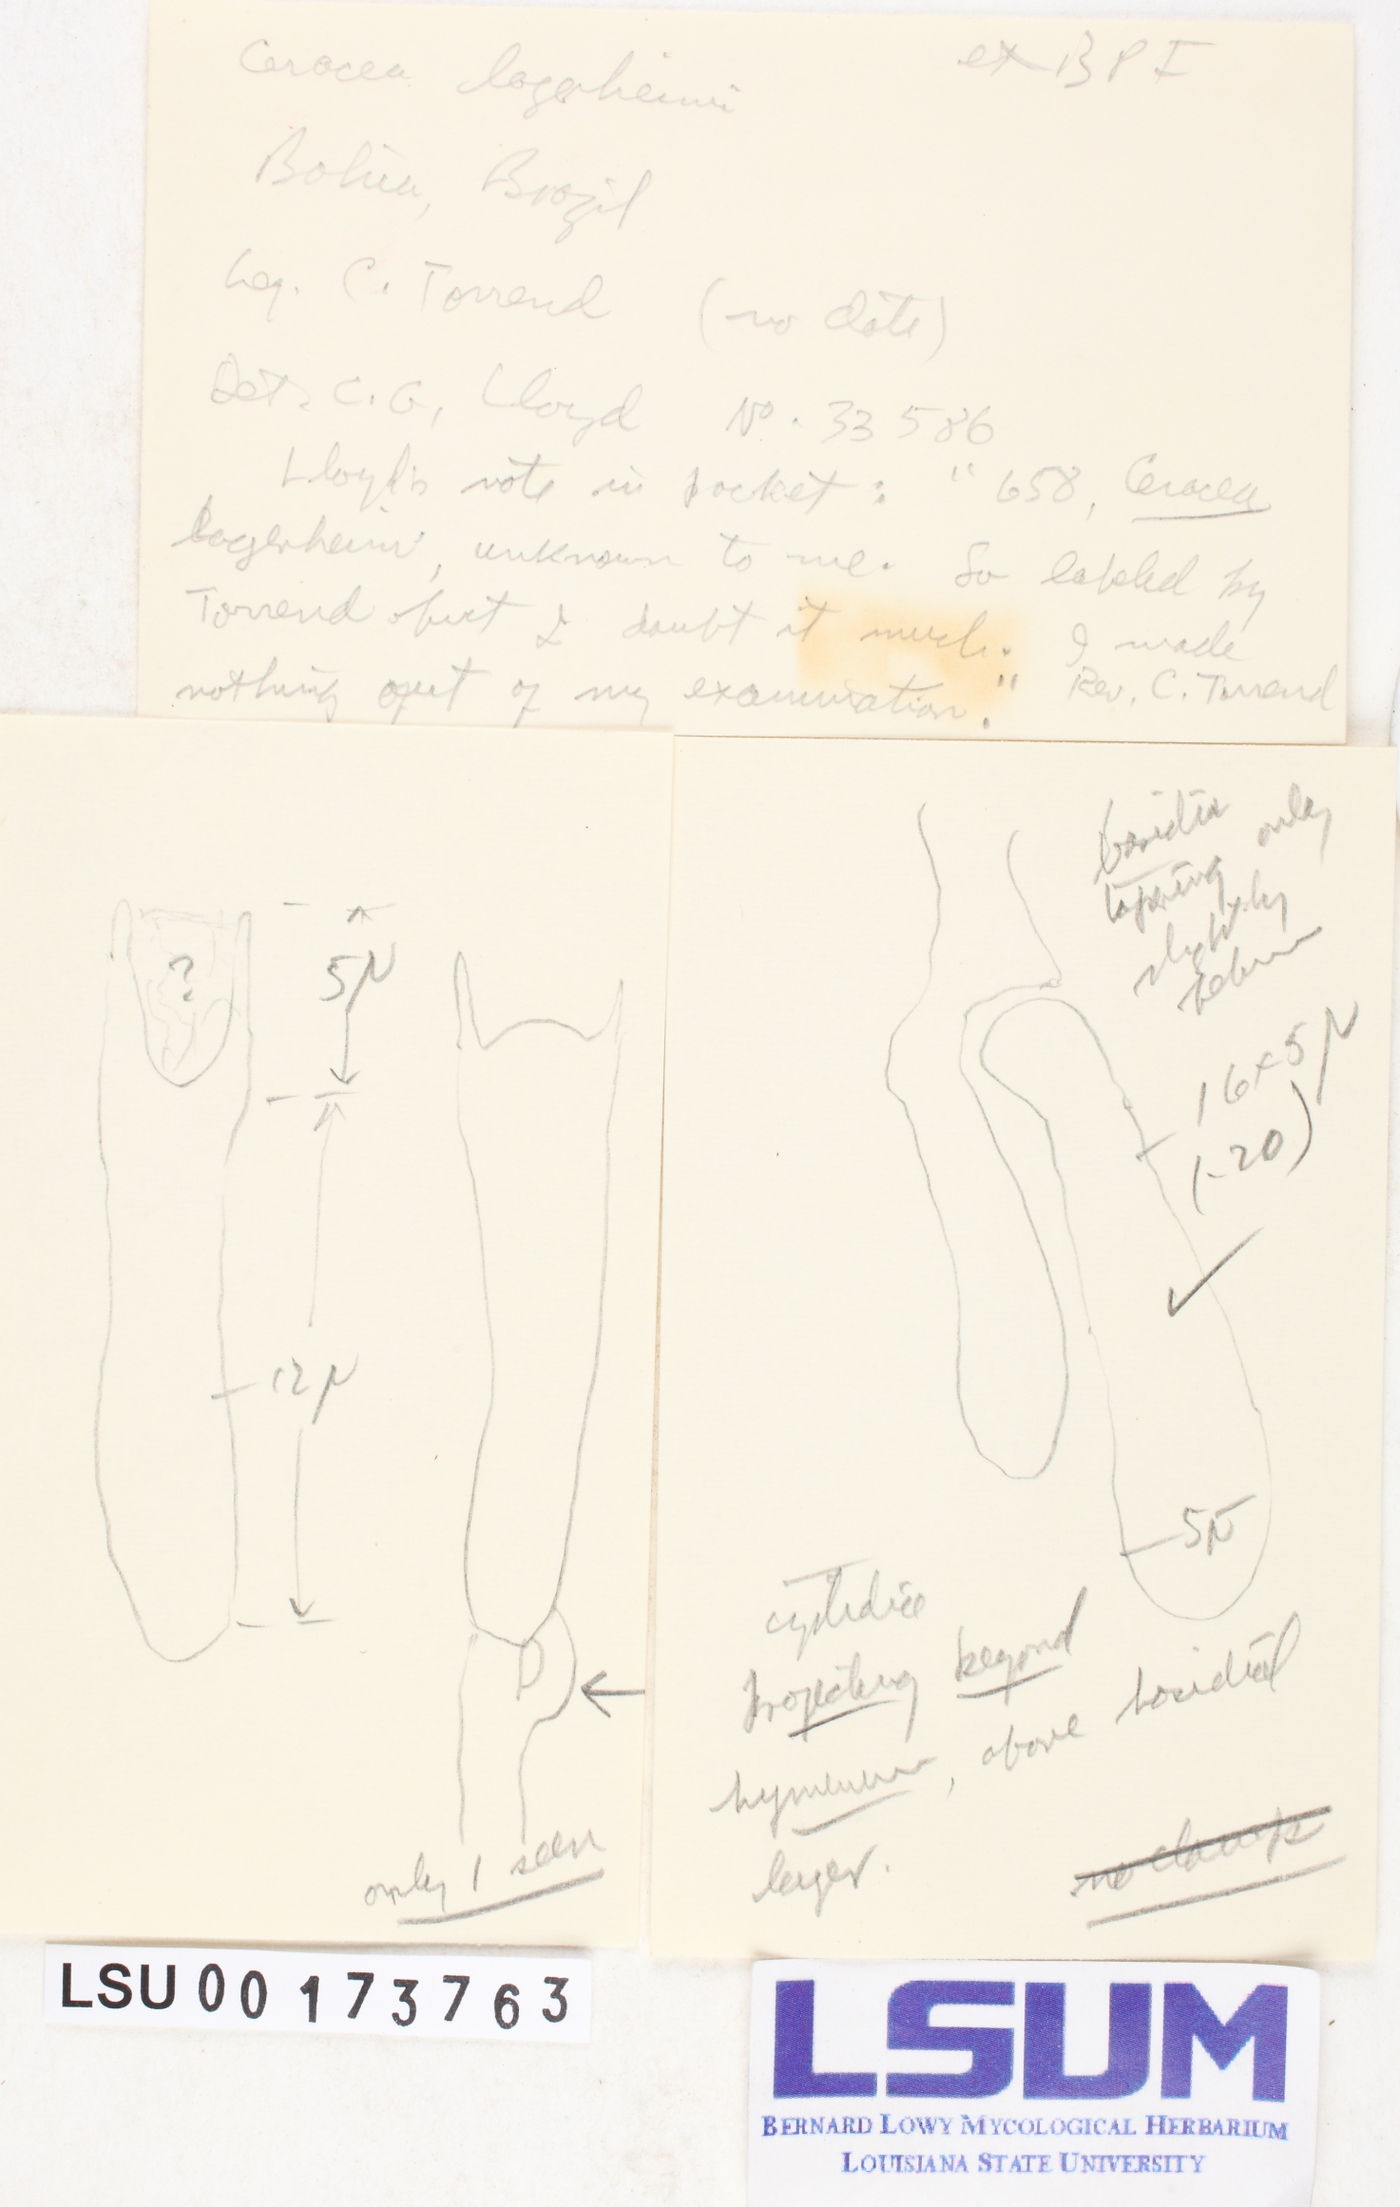 Cerocea lagerheimi ex BPI
Bahia, Brazil
Leg. C. Torrend (no date)
Det. C. G. Lloyd No. 33586
Lloyd's note in packet: "658, Cerocea
lagerheimi, unknown to me. So labeled by
Torrend but I doubt it much. I made
nothing out of my examination." Rev. C. Torrend
?
5μ
12μ
only 1 seen
basidia
tapering only
slightly
below
16 x 5μ
(-20)
5μ
cystidia
projecting beyond
hymenium, above basidial
layer.
no clamps
LSU00173763
LSUM
BERNARD LOWY MYCOLOGICAL HERBARIUM
LOUISIANA STATE UNIVERSITY